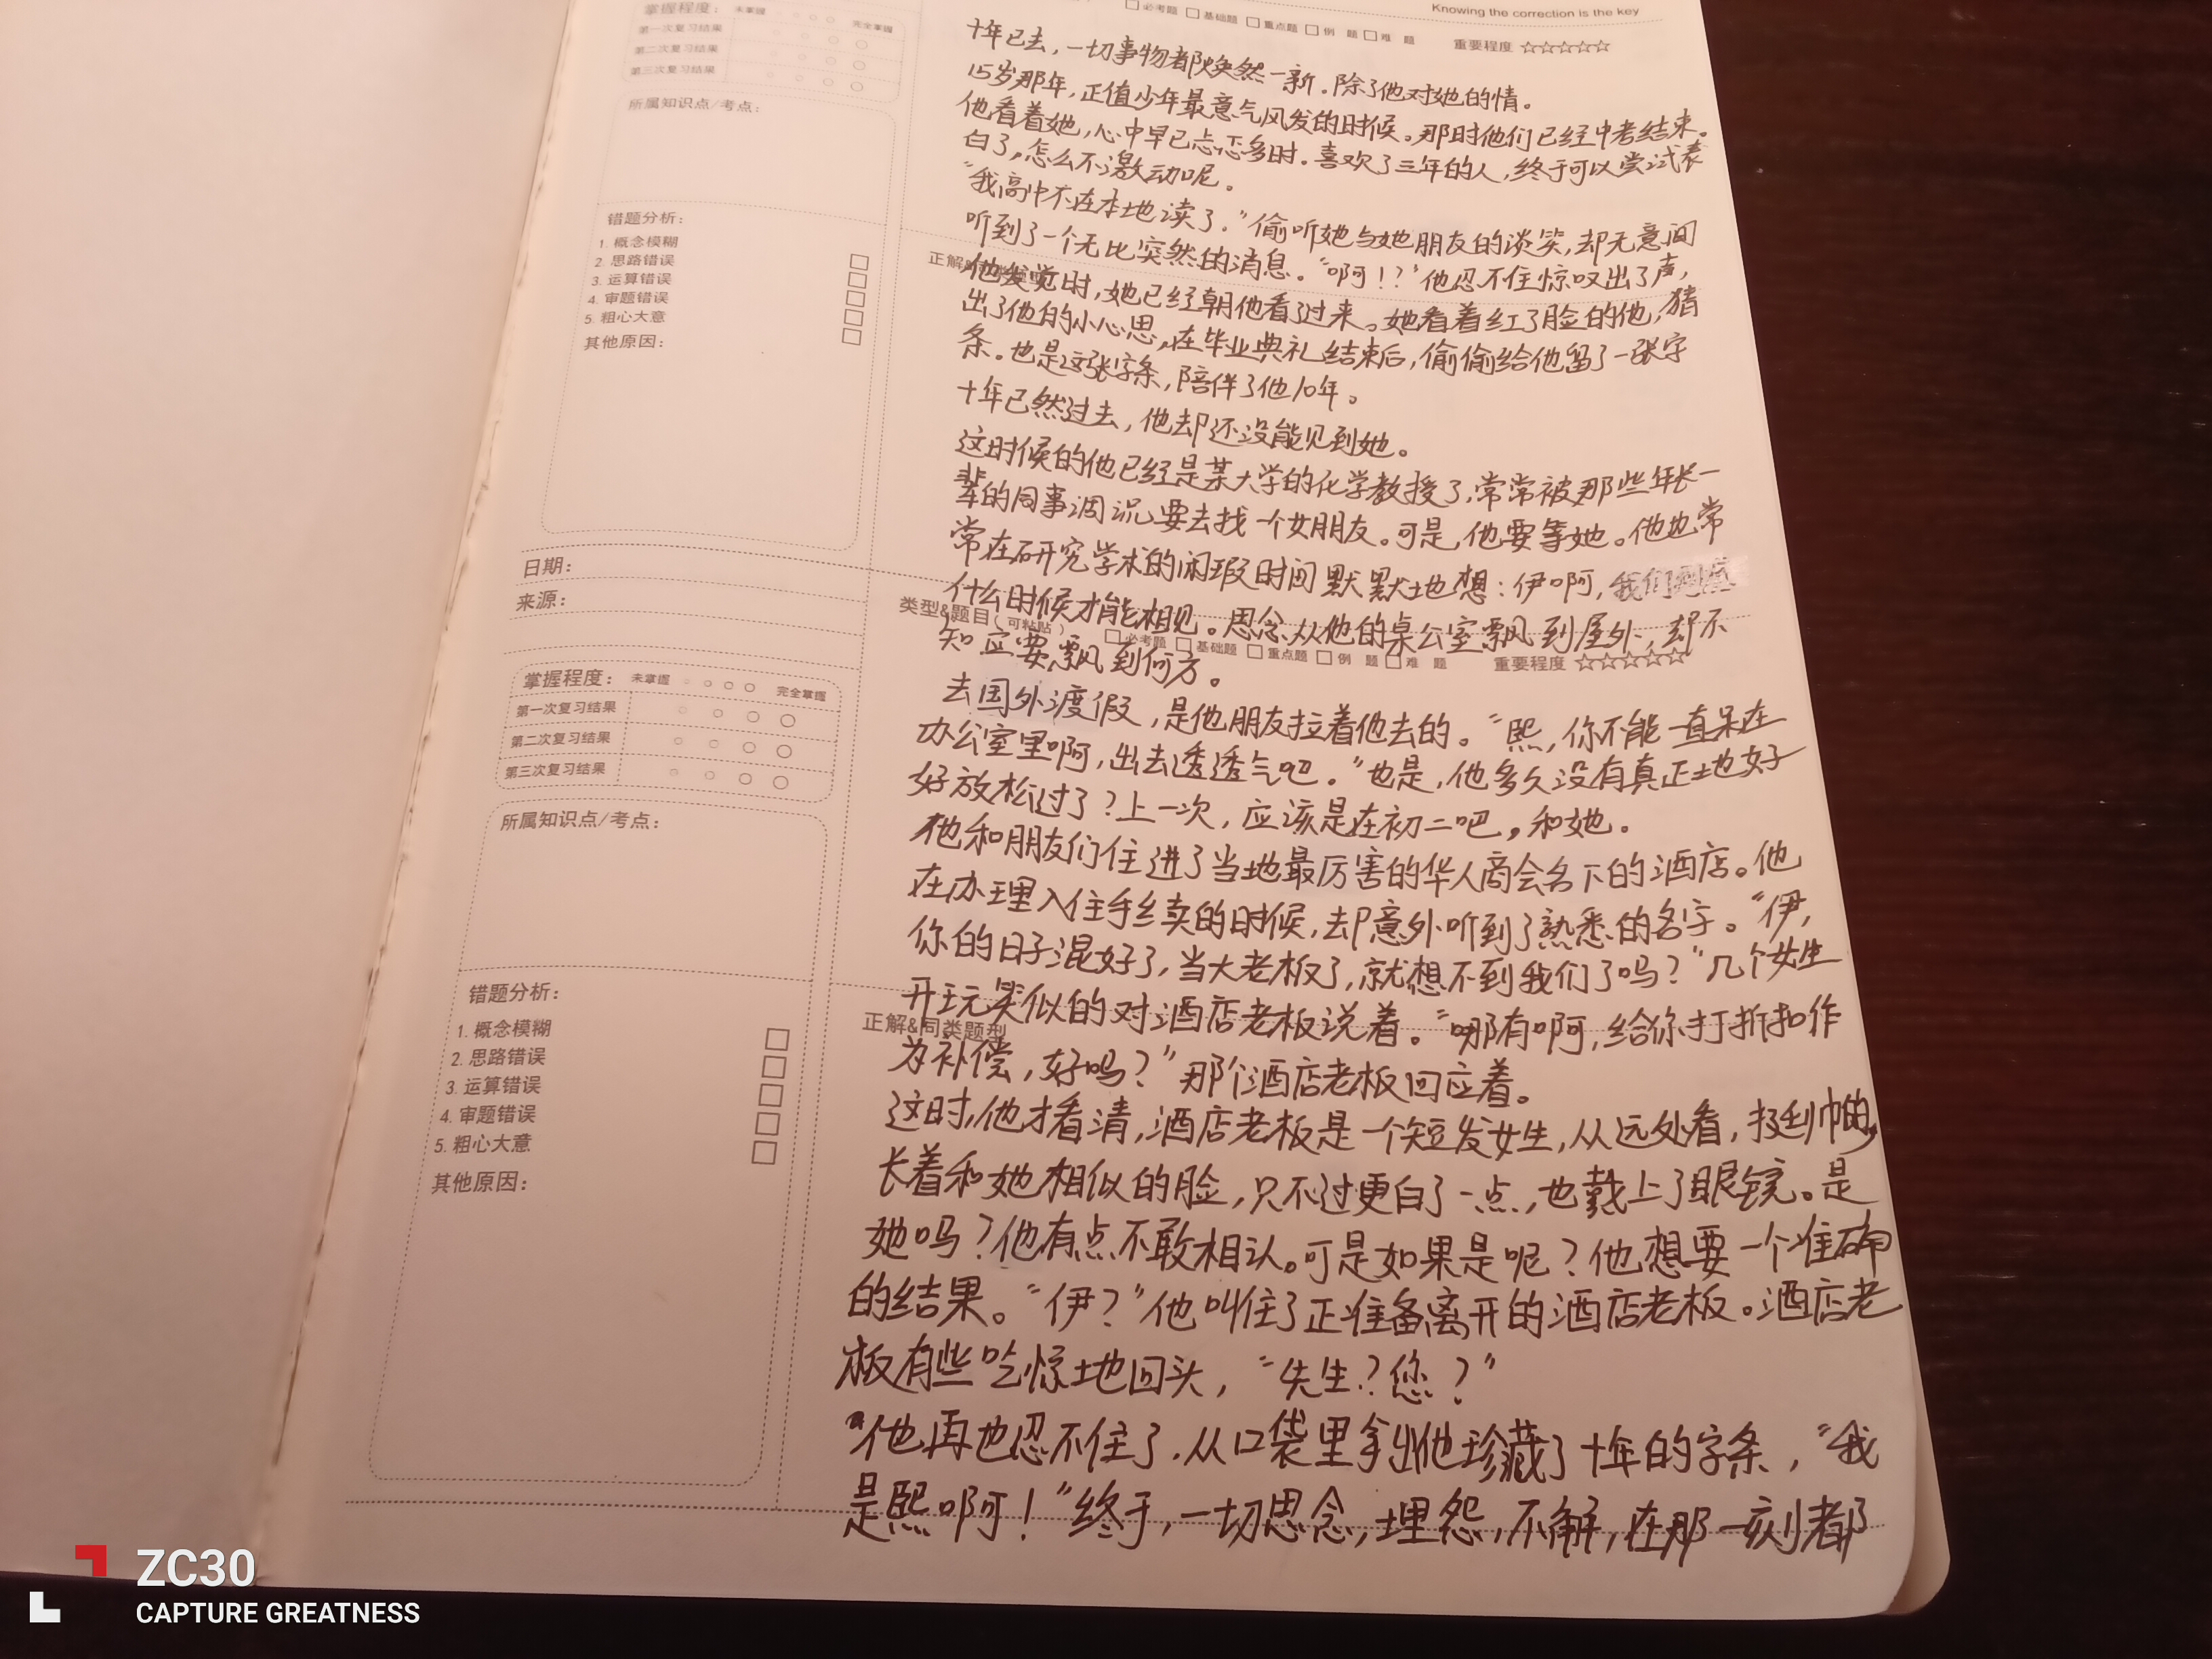 掌握程度： 未掌握 完全掌握
第一次复习结果
第二次复习结果
第三次复习结果
所属知识点/考点：
错题分析：
1. 概念模糊
2. 思路错误
3. 运算错误
4. 审题错误
5. 粗心大意
其他原因：
日期：
来源：
掌握程度： 未掌握 完全掌握
第一次复习结果
第二次复习结果
第三次复习结果
所属知识点/考点：
错题分析：
1. 概念模糊
2. 思路错误
3. 运算错误
4. 审题错误
5. 粗心大意
其他原因：
Knowing the correction is the key
必考题 基础题 重点题 例 题 难 题 重要程度 ☆☆☆☆☆
十年已去，一切事物都焕然一新。除了他对她的情。
15岁那年，正值少年最意气风发的时候。那时他们已经中考结束。
他看着她，心中早已忐忑多时。喜欢了三年的人，终于可以尝试表
白了，怎么不激动呢。
“我高中不在本地读了。”偷听她与她朋友的谈笑，却无意间
听到了一个无比突然的消息。“啊！？”他忍不住惊叹出了声，
正解&同类题型
他发觉时，她已经朝他看了过来。她看着红了脸的他，猜
出了他的小心思，在毕业典礼结束后，偷偷给他留了一张字
条。也是这张字条，陪伴了他10年。
十年已然过去，他却还没能见到她。
这时候的他已经是某大学的化学教授了，常常被那些年长一
辈的同事调说要去找一个女朋友。可是，他要等她。他也常
常在研究学术的闲瑕时间默默地想：伊啊，我们到底
什么时候才能相见。思念从他的桌公室飘到屋外，却不
类型&题目（可粘贴） 必考题 基础题 重点题 例 题 难 题 重要程度 ☆☆☆☆☆
知应要飘到何方。
去国外渡假，是他朋友拉着他去的。“熙，你不能一直呆在
办公室里啊，出去透透气吧。”也是，他多久没有真正地好
好放松过了？上一次，应该是在初二吧，和她。
他和朋友们住进了当地最厉害的华人商会名下的酒店。他
在办理入住手续的时候，却意外听到了熟悉的名字。“伊，
你的日子混好了，当大老板了，就想不到我们了吗？”几个女生
开玩笑似的对酒店老板说着。“哪有啊，给你打折扣作
正解&同类题型
为补偿，好吗？”那个酒店老板回应着。
这时，他才看清，酒店老板是一个短发女生，从远处看，挺帅的，
长着和她相似的脸，只不过更白了一点，也戴上了眼镜。是
她吗？他有点不敢相认。可是如果是呢？他想要一个准确
的结果。“伊？”他叫住了正准备离开的酒店老板。酒店老
板有些吃惊地回头，“先生？您？”
他再也忍不住了，从口袋里拿出他珍藏了十年的字条，“我
是熙啊！”终于，一切思念，埋怨，不解，在那一刻都
ZC30
CAPTURE GREATNESS